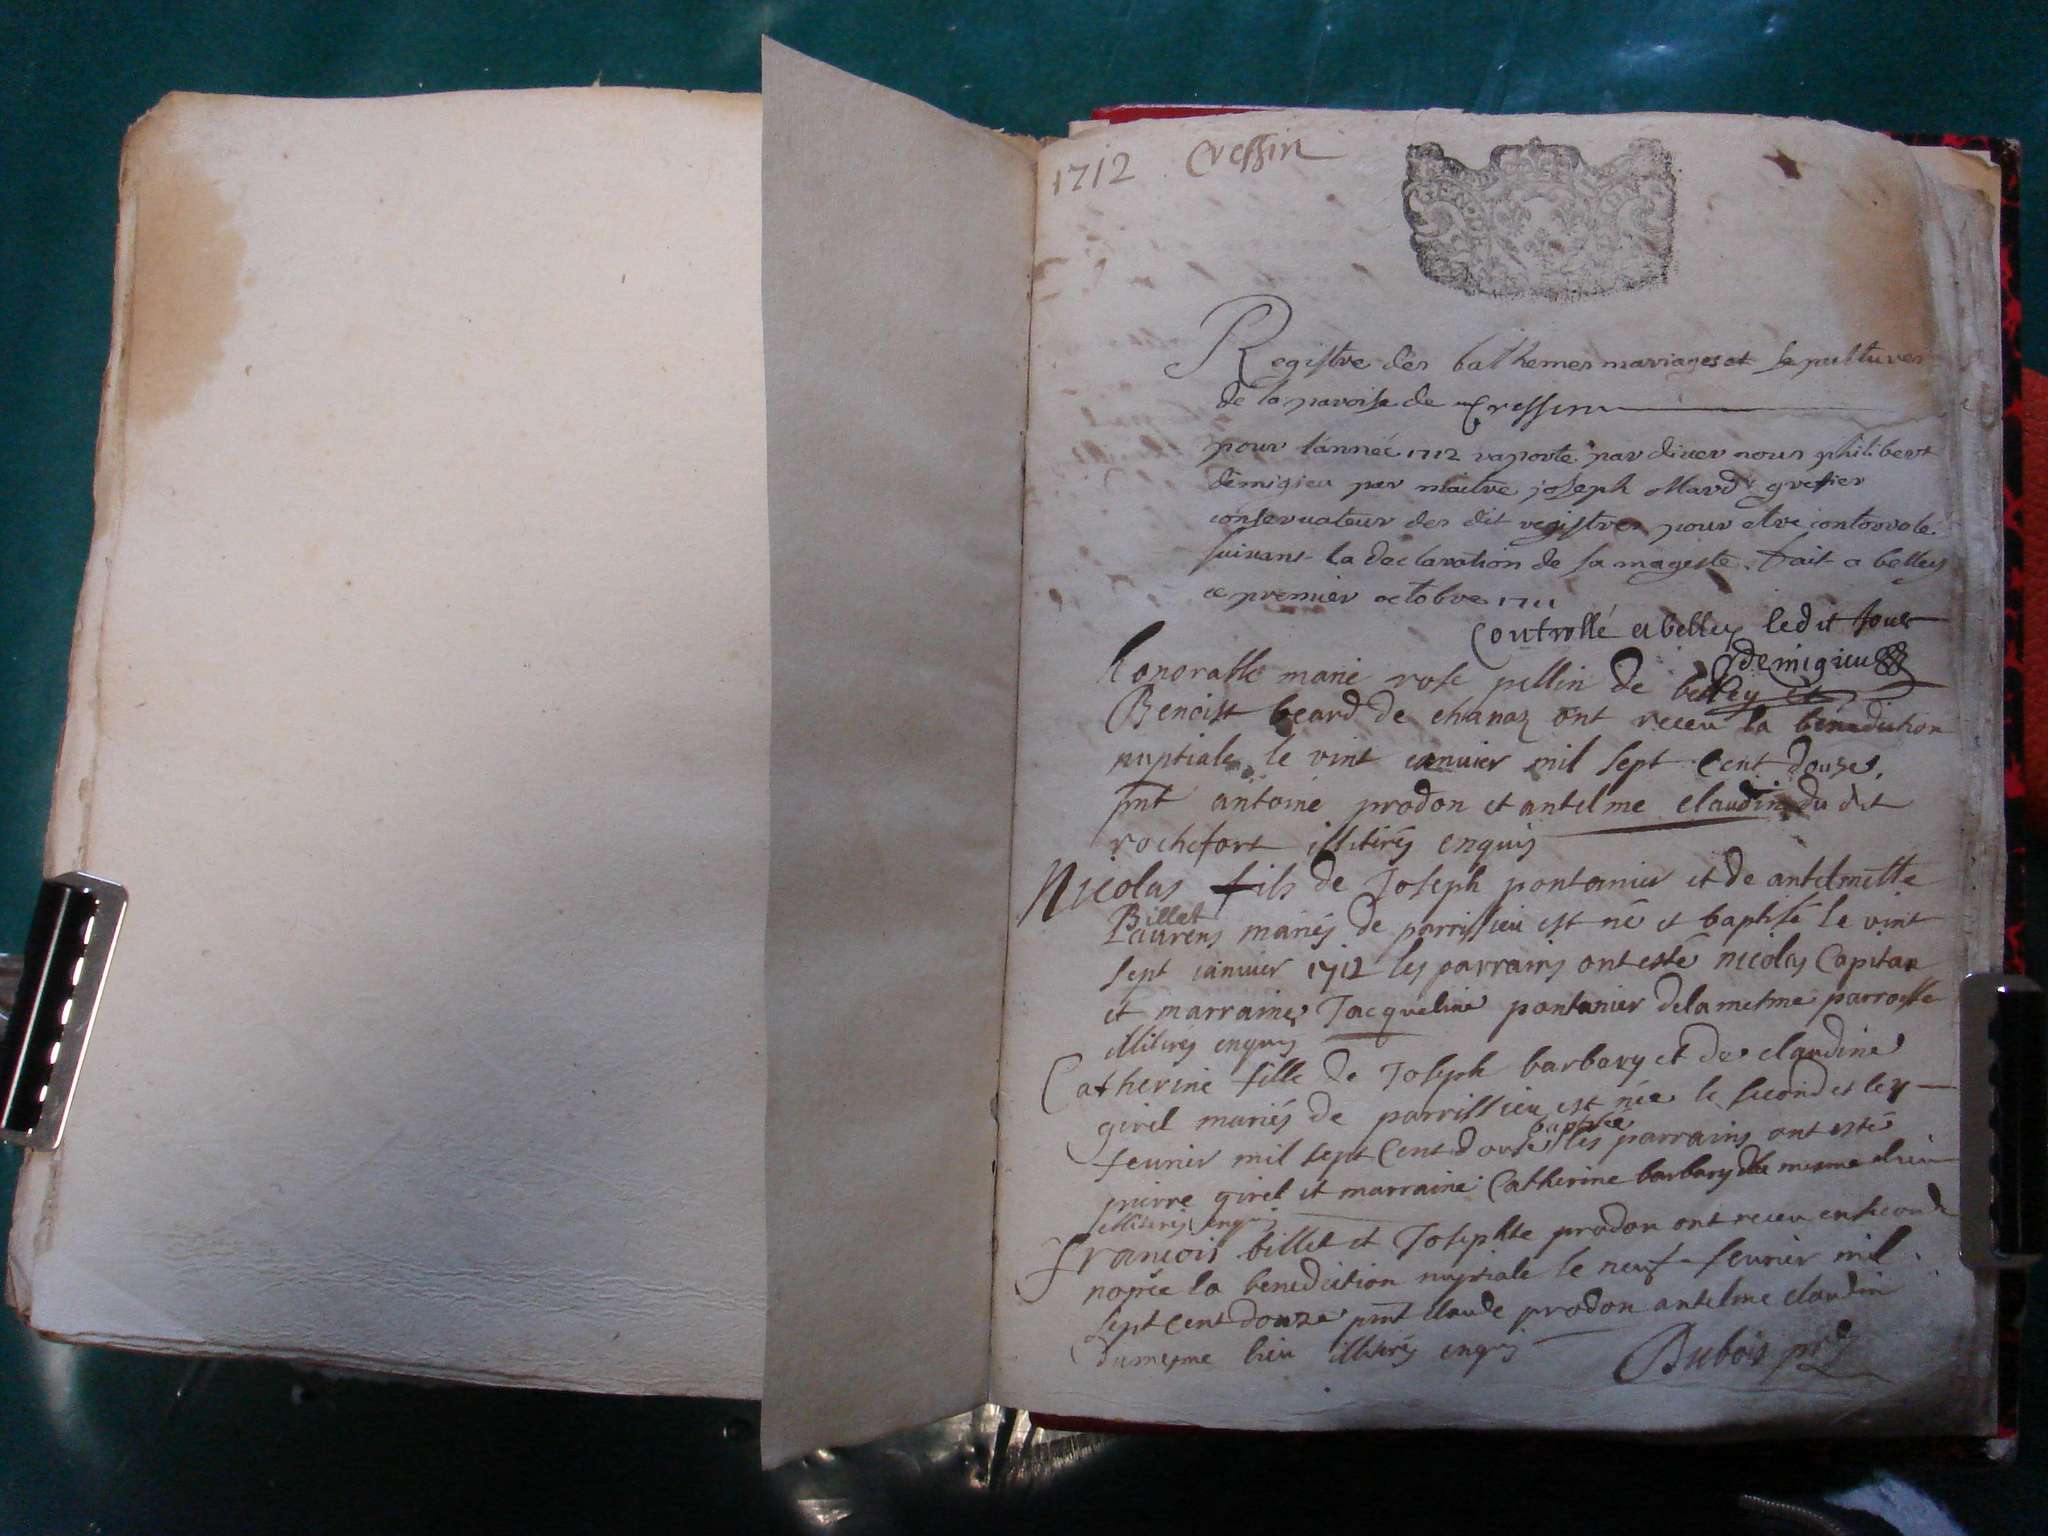 1712 Cressin
Registre des bathemes mariages et sepultures
de la paroise de Cressin
pour l'année 1712 raporte par diver nous philibert
demigieu par maitre joseph Mard grefier
conservateur des dit registres pour etre controrolé
suivant la declaration de sa mageste. fait a belley
ce premier octobre 1711
Controllé a belley ledit jour
demigieu
honorable marie rose pellin de belley et
Benoist beard de chanaz ont receu la benediction
nuptiale le vint ianuier mil sept cent douze,
pnt antoine prodon et antelme claudin du dit
rochefort illiterés enquis
Nicolas fils de Joseph pontanier et de antelmette
Billet
Laurens mariés de parrissieu est né et baptisé le vint
sept ianuier 1712 les parrains ont esté nicolas Capitan
et marraine Jacqueline pontanier de la mesme parroisse
illiteres enquis
Catherine fille de Joseph barbary et de claudine
girel mariés de parrissieu est née le second et le 4
baptisée
feurier mil sept cent douse les parrains ont esté
pierre girel et marraine Catherine barbary du mesme lieu
illiterés enquis
francois billet et Josephte prodon ont receu en seconde
nopce la benediction nuptiale le neuf feurier mil
sept cent douze pnt claude prodon antelme claudin
du mesme lieu illiterés enquis
Dubois